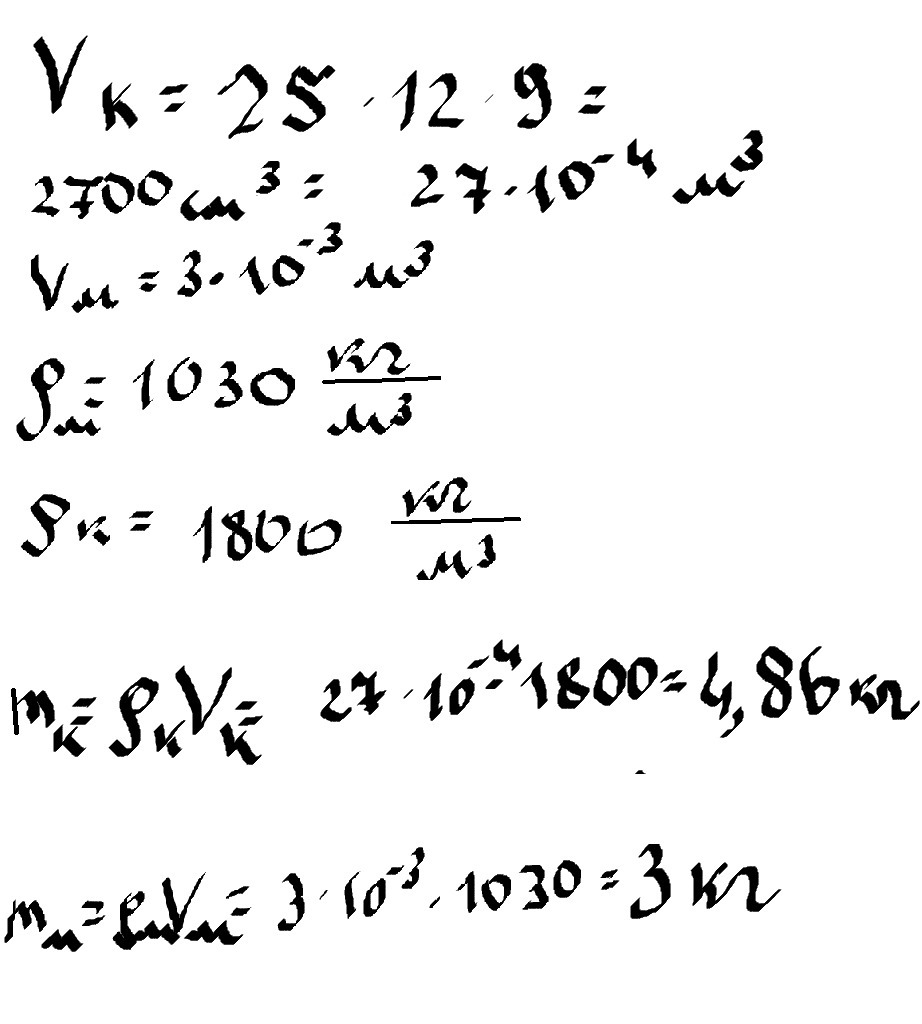 Vк = 25 · 12 · 9 =
2700 см³ = 27 · 10⁻⁴ м³
Vм = 3 · 10⁻³ м³
ρм = 1030 кг/м³
ρк = 1800 кг/м³
mк = ρкVк = 27 · 10⁻⁴ · 1800 = 4,86 кг
mм = ρмVм = 3 · 10⁻³ · 1030 = 3 кг